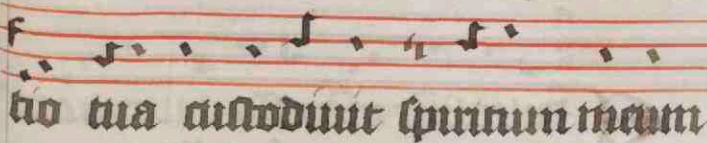 tio tua custodiuit spiritum meum